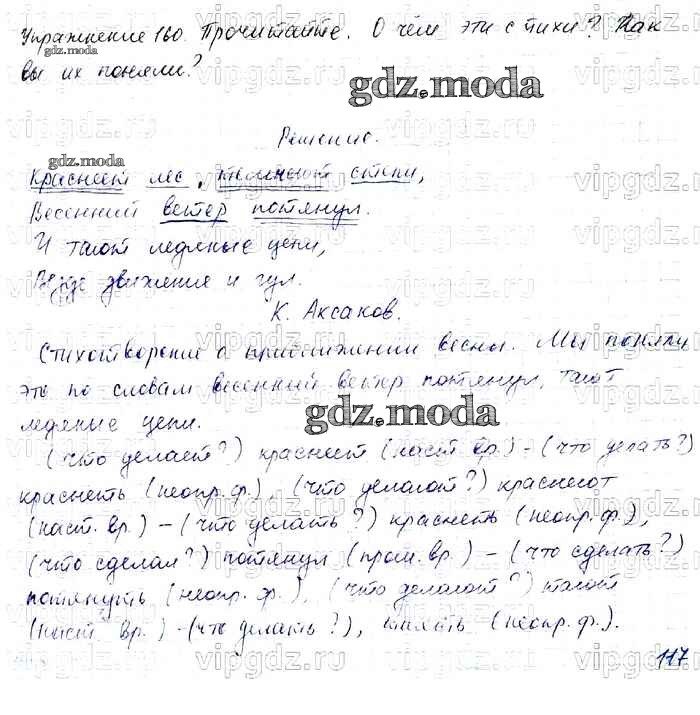 Упражнение 160. Прочитайте. О чём эти стихи? Как
вы их поняли?
gdz.moda
gdz.moda
Решение.
gdz.moda
Краснеет лес, степи,
Весенний ветер потянул.
И тают ледяные цепи,
Везде движение и гул.
К. Аксаков.
Стихотворение о приближении весны. Мы поняли
это по словам весенний ветер потянул, тают
ледяные цепи.
gdz.moda
(что делает?) краснеет (наст. вр.) – (что делать?)
краснеть (неопр. ф.), (что делают?) краснеют
(наст. вр.) – (что делать?) краснеть (неопр. ф.),
(что сделал?) потянул (прош. вр.) – (что сделать?)
потянуть (неопр. ф.), (что делают?) тают
(наст. вр.) – (что делать?), таять (неопр. ф.).
vipgdz.ru
117